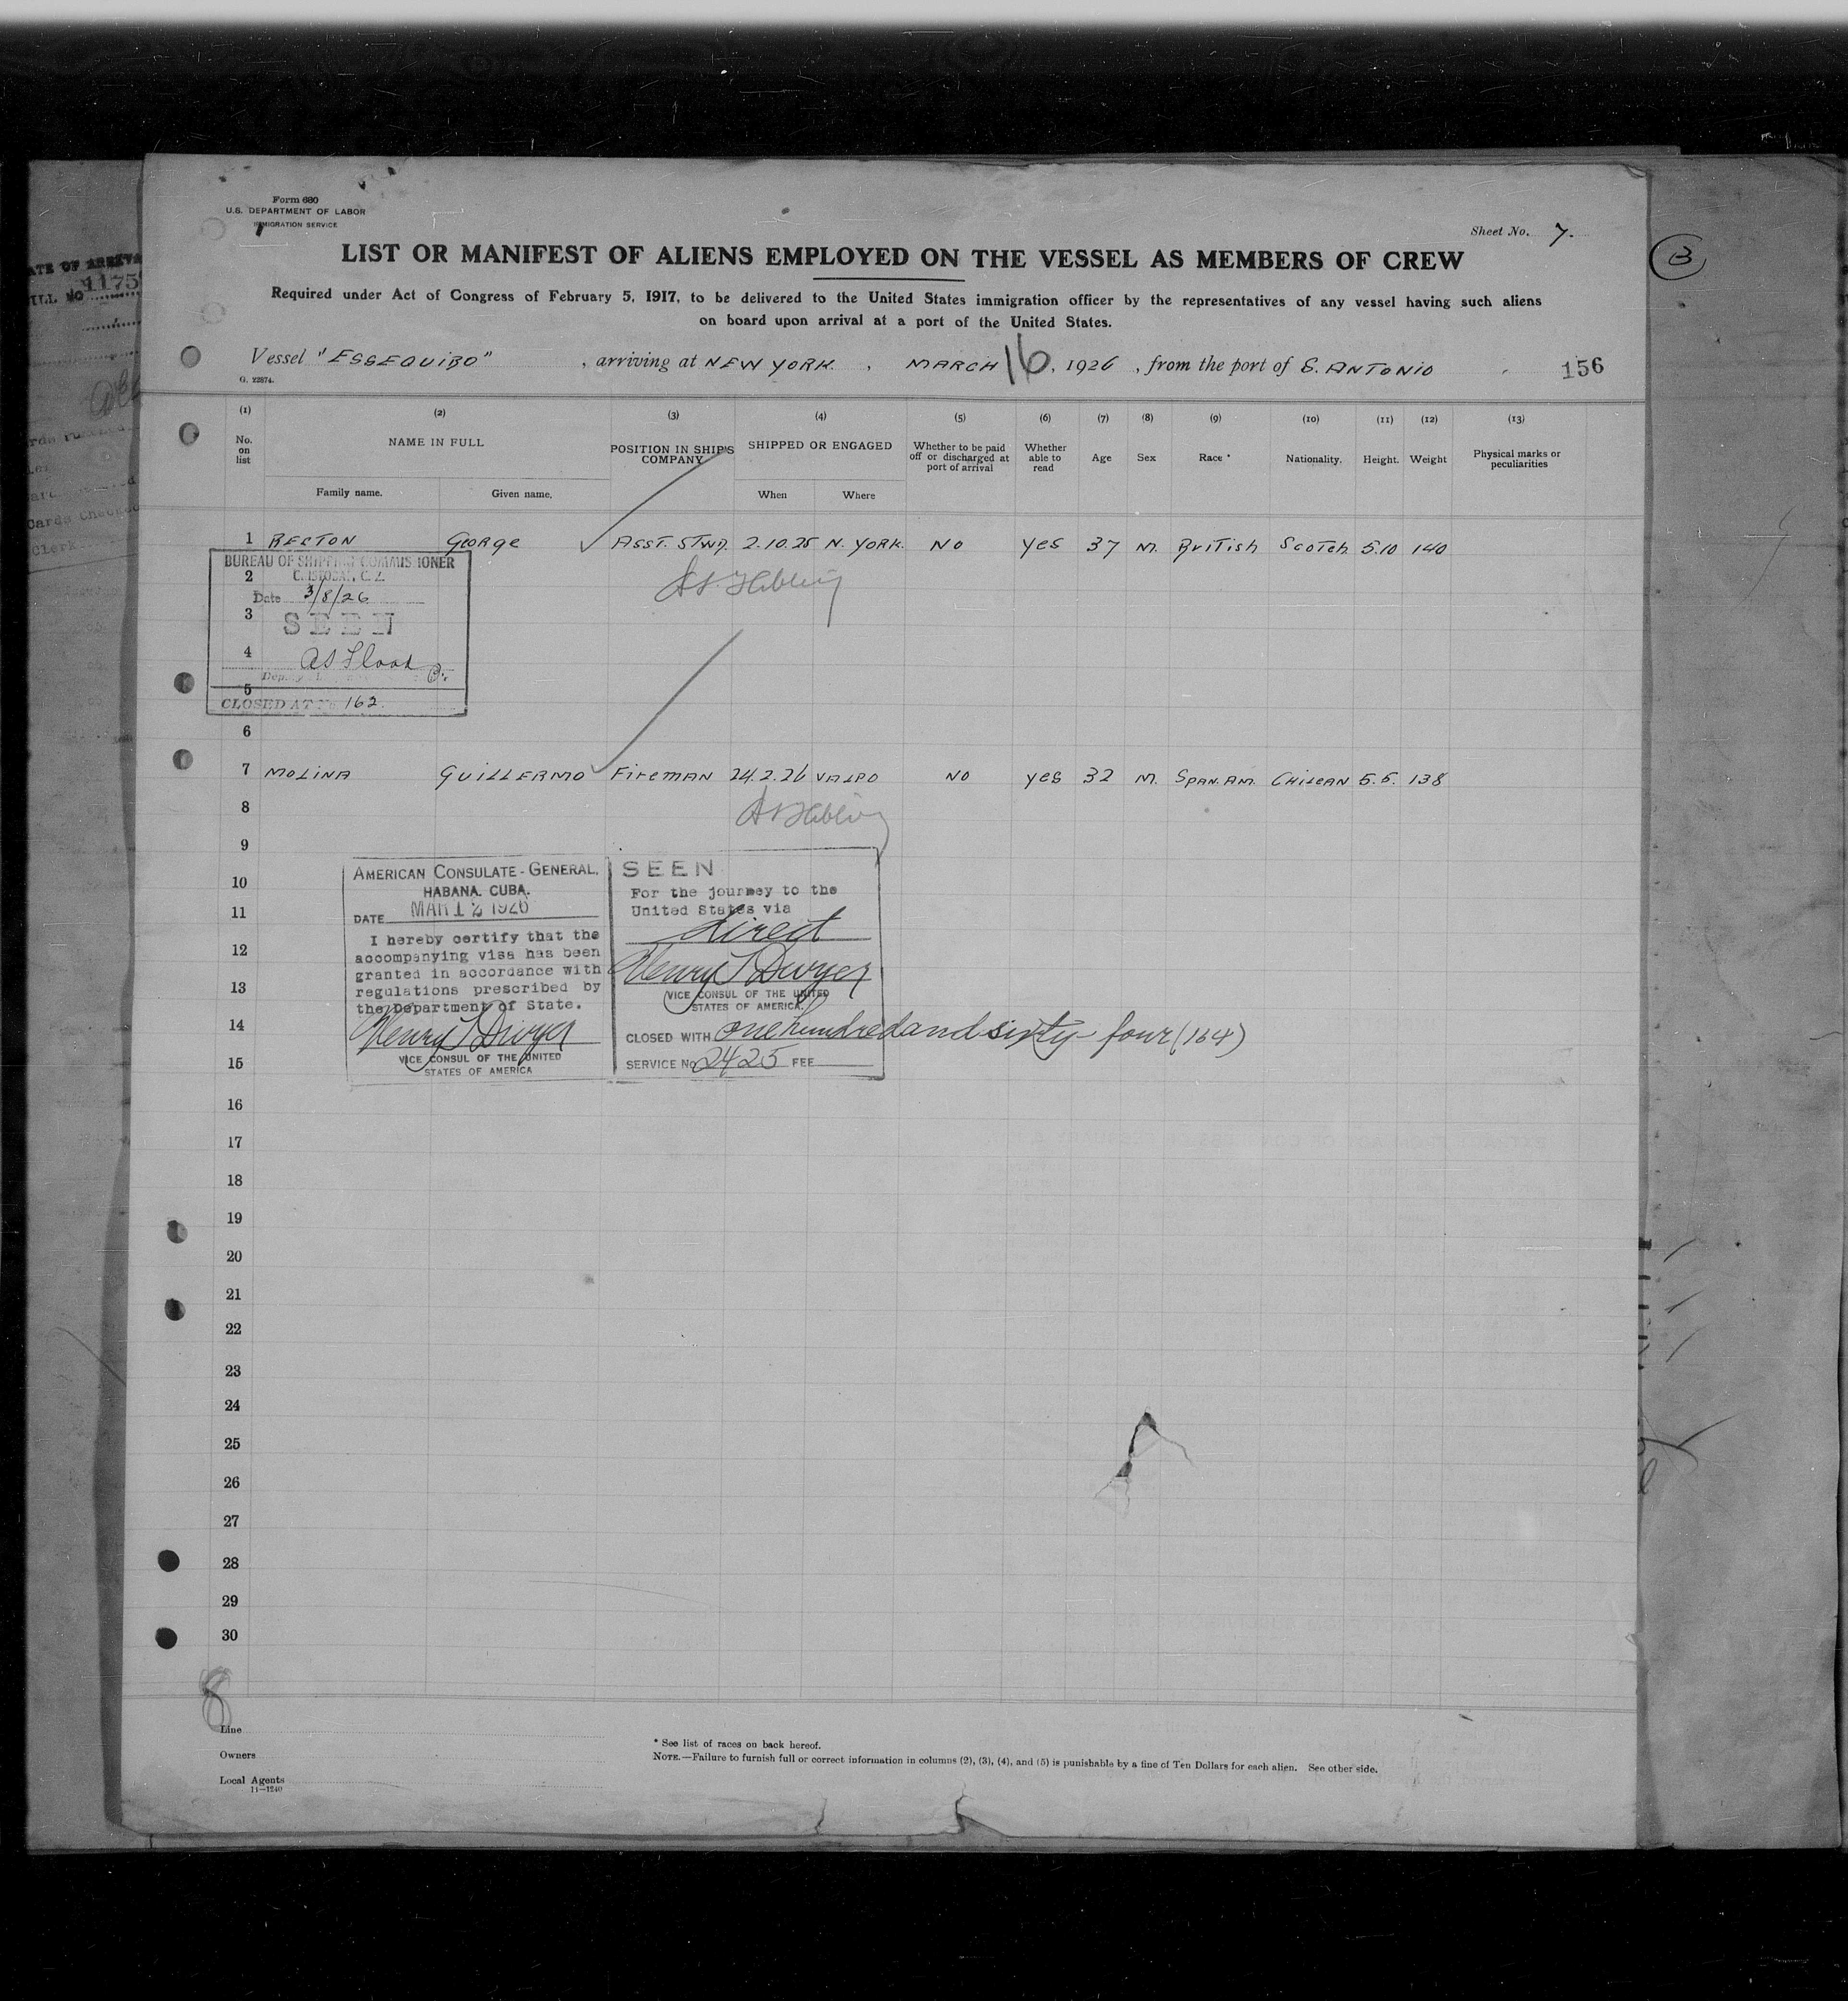 Form 680
U.S. DEPARTMENT OF LABOR
IMMIGRATION SERVICE
Sheet No. 7.
LIST OR MANIFEST OF ALIENS EMPLOYED ON THE VESSEL AS MEMBERS OF CREW
Required under Act of Congress of February 5, 1917, to be delivered to the United States immigration officer by the representatives of any vessel having such aliens
on board upon arrival at a port of the United States.
Vessel "ESSEQUIBO", arriving at NEW YORK, MARCH 16, 1926, from the port of S. ANTONIO
156
G. 22874.
(1) (2) (3) (4) (5) (6) (7) (8) (9) (10) (11) (12) (13)
No. on list NAME IN FULL POSITION IN SHIP'S COMPANY SHIPPED OR ENGAGED Whether to be paid off or discharged at port of arrival Whether able to read Age Sex Race * Nationality. Height. Weight Physical marks or peculiarities
Family name. Given name. When Where
1 RECTON George ASST. STWD. 2.10.25 N. YORK. NO yes 37 M. British Scotch 5.10 140
BUREAU OF SHIPPING COMMISSIONER
2 CRISTOBAL, C. Z.
Date 3/8/26
3 SEEN
4
5
CLOSED AT No 162.
6
7 MOLINA GUILLERMO Fireman 24.2.26 VALPO NO yes 32 M. SPAN. AM. CHILEAN 5.5. 138
8
9
10
11
12
13
14
15
AMERICAN CONSULATE-GENERAL,
HABANA, CUBA.
DATE MAR 12 1926
I hereby certify that the
accompanying visa has been
granted in accordance with
regulations prescribed by
the Department of State.
Henry T Dwyer
VICE CONSUL OF THE UNITED
STATES OF AMERICA
SEEN
For the journey to the
United States via
direct
Henry T Dwyer
VICE CONSUL OF THE UNITED
STATES OF AMERICA.
CLOSED WITH one hundred and sixty-four (164)
SERVICE No 2425 FEE
16
17
18
19
20
21
22
23
24
25
26
27
28
29
30
8
Line
Owners
Local Agents
11-1240
* See list of races on back hereof.
NOTE.—Failure to furnish full or correct information in columns (2), (3), (4), and (5) is punishable by a fine of Ten Dollars for each alien. See other side.